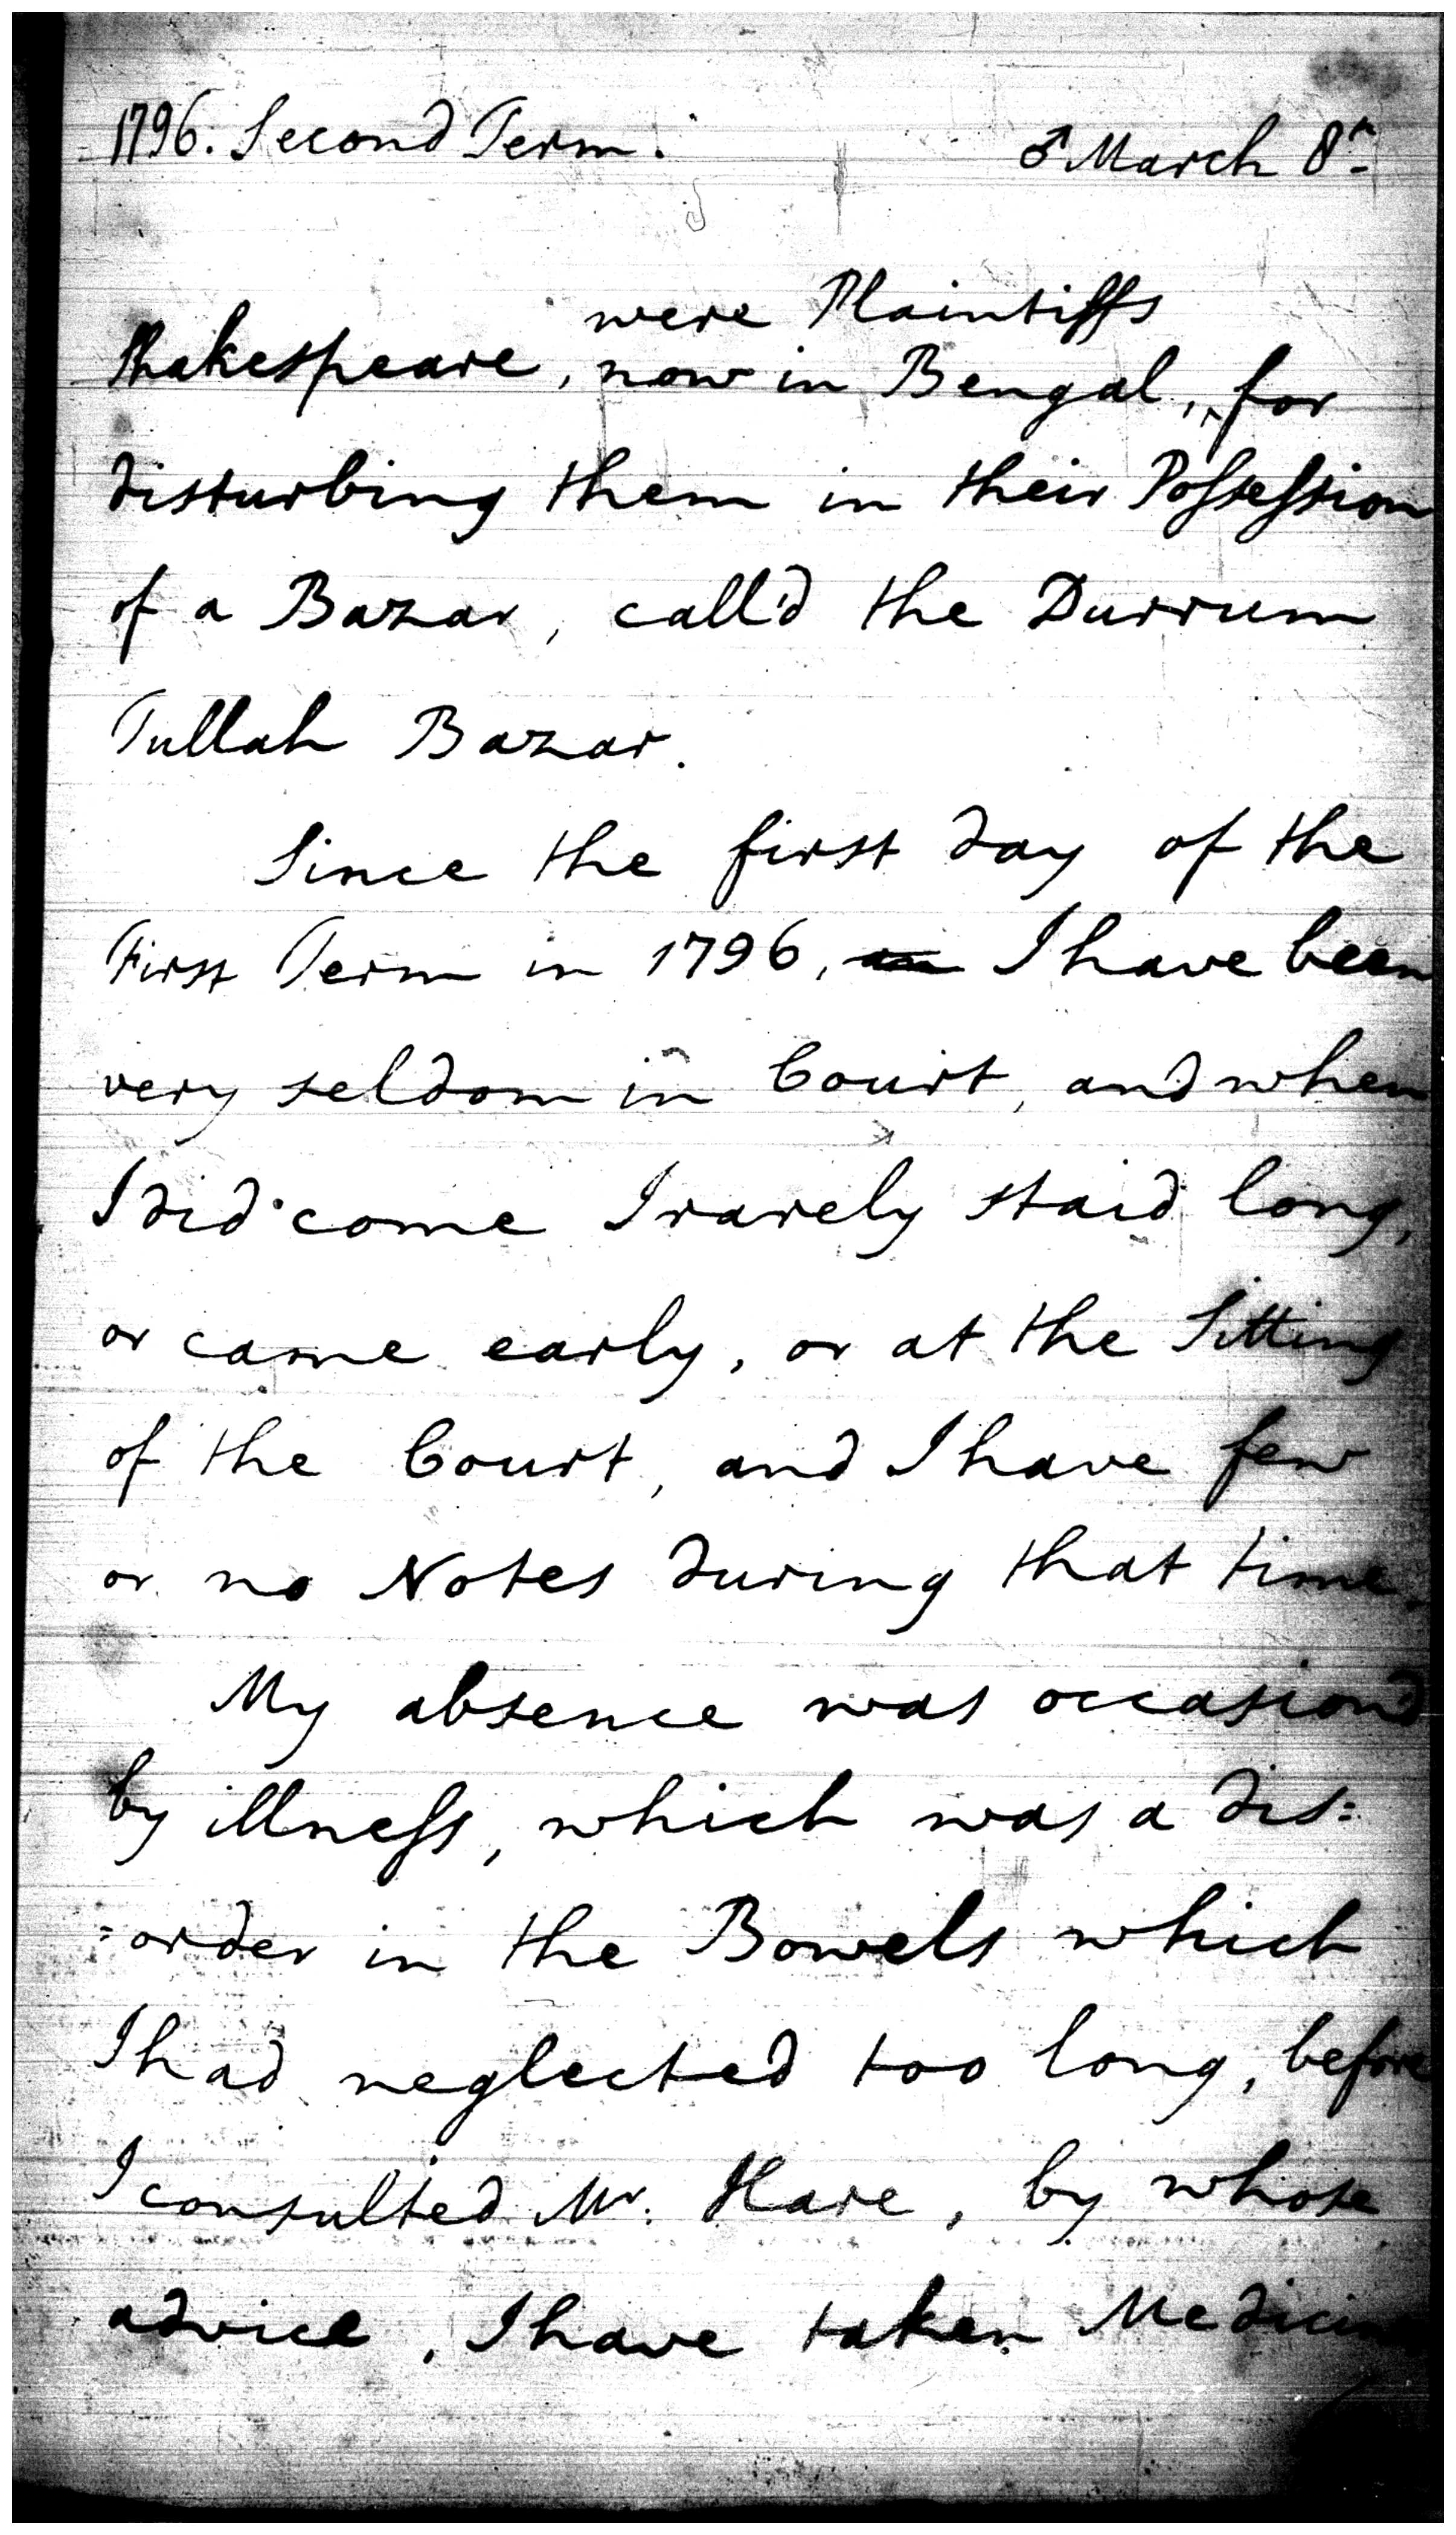 1796. Second Term. ♂ March 8th
were Plaintiffs
Shakespeare, now in Bengal, ‸ for
disturbing them in their Possession
of a Bazar, call'd the Durrum
Tullah Bazar.
Since the first day of the
First Term in 1796, I have been
very seldom in Court, and when
I did come I rarely staid long,
or came early, or at the Sitting
of the Court, and I have few
or no Notes during that time.
My absence was occasion'd
by illness, which was a dis=
=order in the Bowels which
I had neglected too long, before
I consulted Mr. Hare, by whose
advice, I have taken Medicine